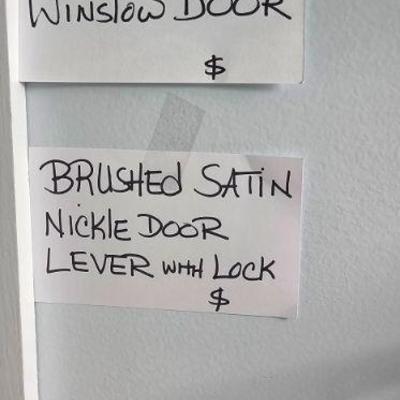 WINSLOW DOOR
$
BRUSHED SATIN
NICKLE DOOR
LEVER WITH LOCK
$